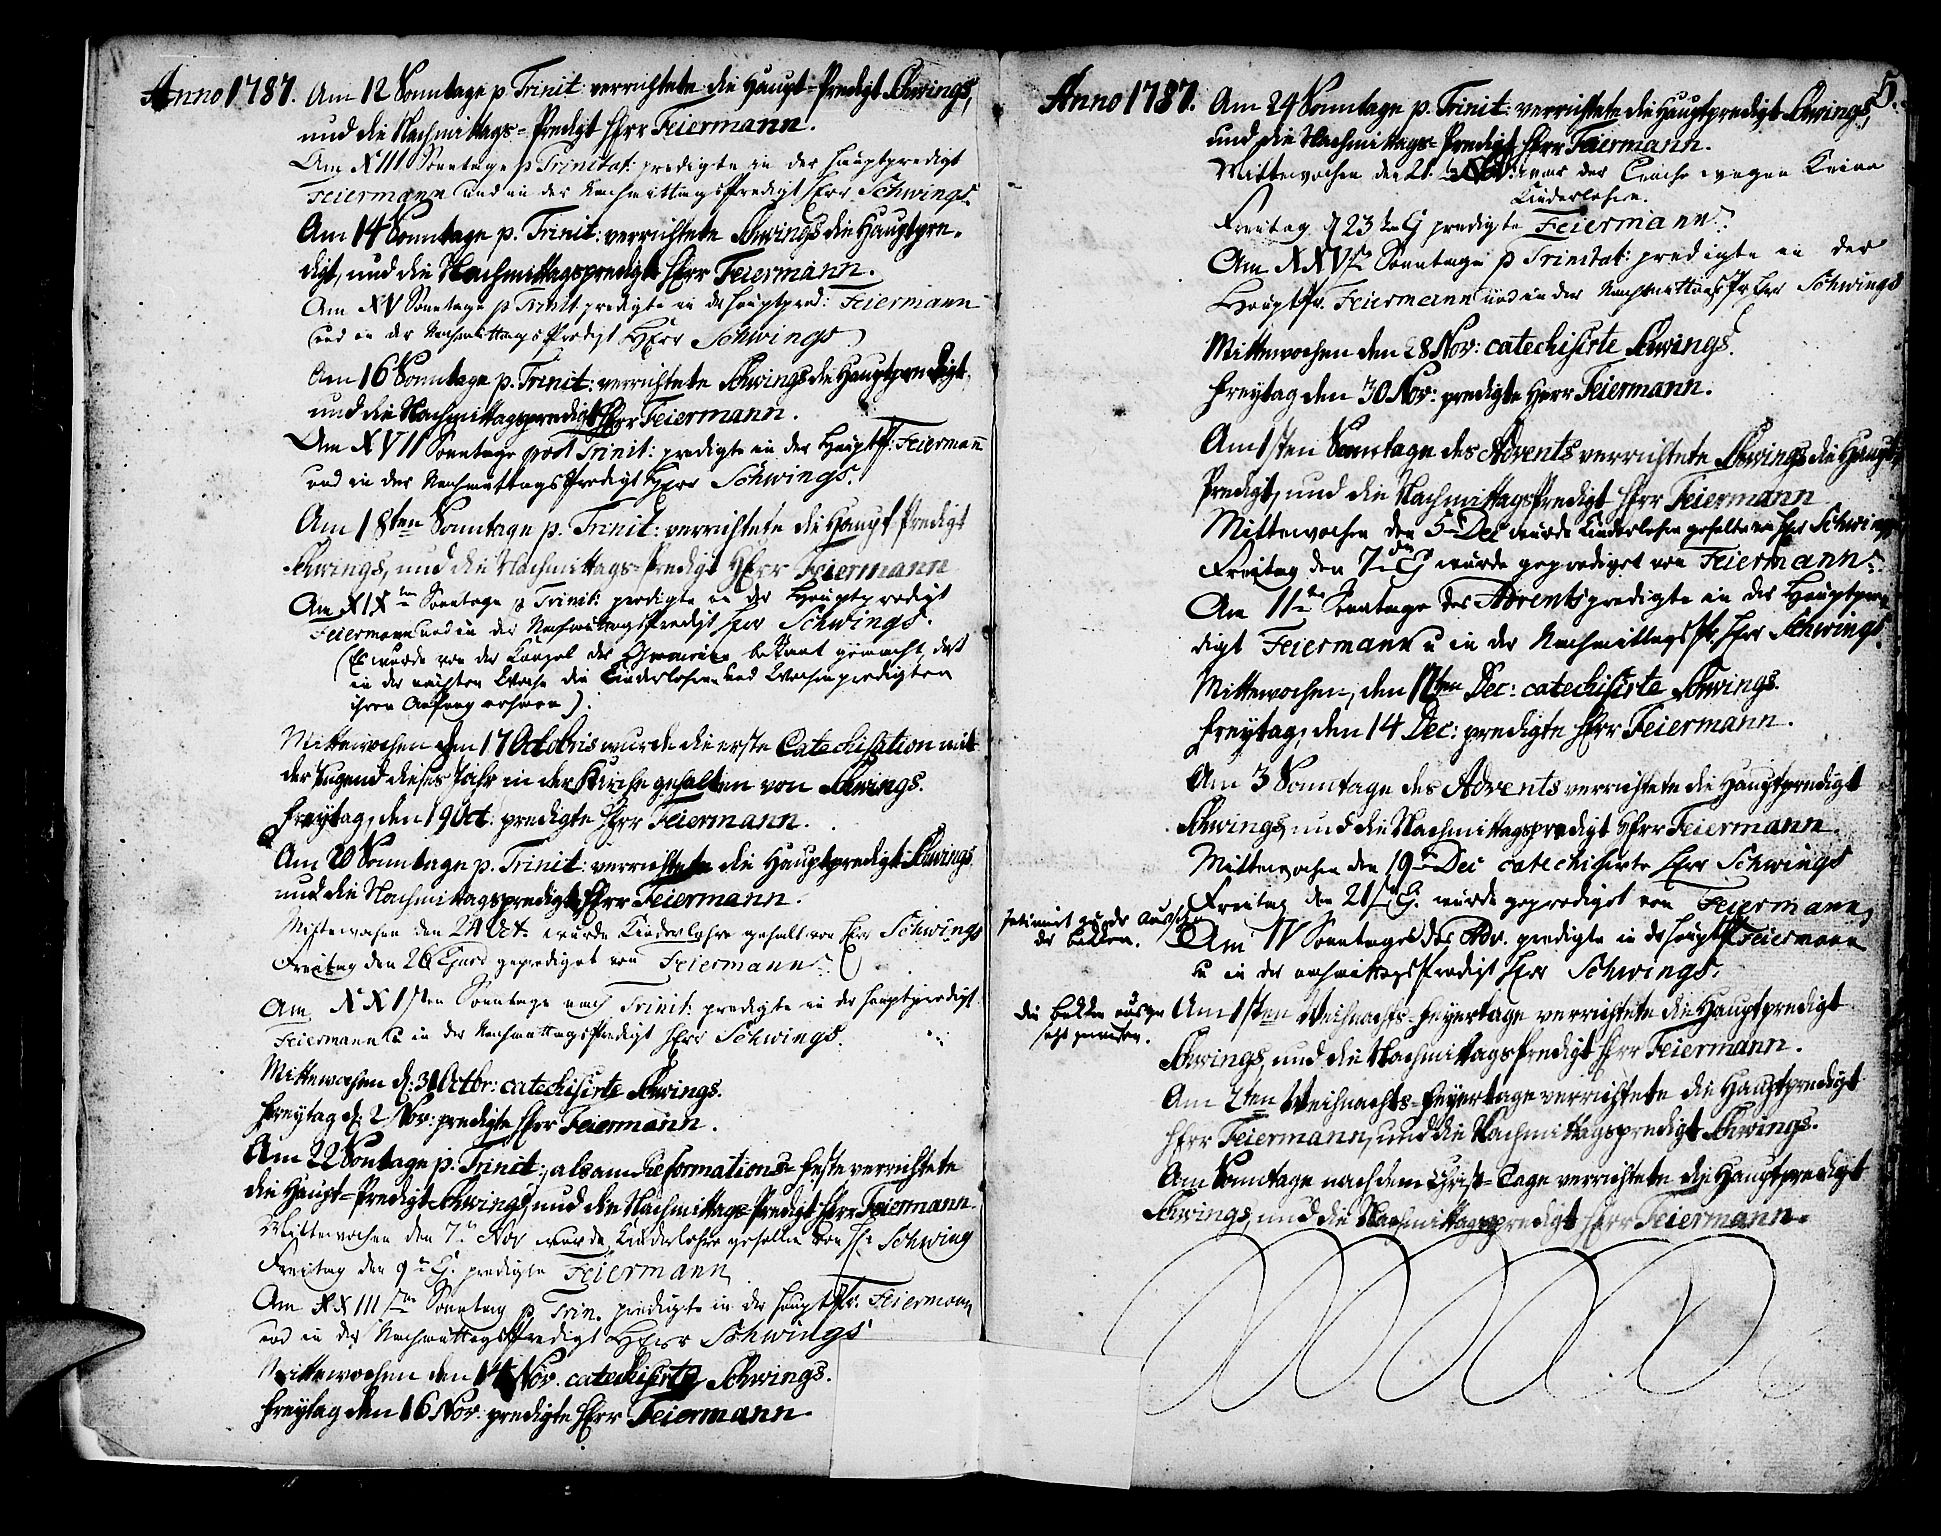 Anno 1787. Am 12 Sonntage p. Trinit: verrichtete die Haupt=Predigt Schwings,
und die Nachmittags=Predigt Herr Feiermann.
Am XIII Sonntage p Trinitat: predigte in der Hauptpredigt
Feiermann und in der NachmittagsPredigt Herr Schwings.
Am 14 Sonntage p. Trinit: verrichtete Schwings die Hauptpre-
digt, und die Nachmittagspredigt Herr Feiermann.
Am XV Sonntage p Trinit. predigte in der Hauptpred: Feiermann
und in der NachmittagsPredigt Herr Schwings
Am 16 Sonntage p. Trinit: verrichtete Schwings die Hauptpredigt,
und die Nachmittagspredigt Herr Feiermann.
Am XVII Sonntage post Trinit: predigte in der Hauptpr: Feiermann
und in der NachmittagsPredigt Herr Schwings.
Am 18ten Sonntage p. Trinit: verrichtete die Haupt Predigt
Schwings, und die Nachmittags=Predigt Herr Feiermann
Am XIXten Sonntage p Trinit: predigte in der Hauptpredigt
Feiermann und in der NachmittagsPredigt Herr Schwings.
(Es wurde von der Kanzel der Gemeine bekant gemacht, daß
in der nächsten Woche die Kinderlehren und Wochenpredigten
ihren Anfang nehmen).
Mittewochen den 17 Octobris wurde die erste Catechisation mit
der Jugend dieses Jahr in der Kirche gehalten von Schwings.
Freytag, den 19 Oct: predigte Herr Feiermann.
Am 20 Sonntage p. Trinit: verrichtete die Hauptpredigt Schwings,
und die Nachmittagspredigt Herr Feiermann.
Mittewochen den 24 Oct. wurde Kinderlehre gehalt von Herr Schwings
Freitag den 26 geprediget von Feiermann.
Am XXIsten Sonntage nach Trinit: predigte in der Hauptpredigt
Feiermann u in der NachmittagsPredigt Herr Schwings.
Mittewochen d: 31 Octbr: catechisirte Schwings.
Freytag d: 2 Nov: predigte Herr Feiermann.
Am 22 Sontage p. Trinit:, als am Reformations=Feste verrichtete
die Haupt=Predigt Schwings, und die Nachmittags=Predigt Herr Feiermann.
Mittewochen den 7n Nov wurde Kinderlehre gehalten von H: Schwings
Freitag den 9n predigte Feiermann
Am XXIIIsten Sonntag p. Trin. predigte in der HauptPr. Feiermann
und in der NachmittagsPredigt Herr Schwings
Mittewochen den 14 Nov. catechisirte Schwings.
Freytag den 16 Nov. predigte Herr Feiermann.
5.
Anno 1787. Am 24 Sonntage p. Trinit: verrichtete die Hauptpredigt Schwings,
und die Nachmittags=Predigt Herr Feiermann.
Mittewochen den 21. Nov: war der wegen keine
Kinderlehre.
Freitag d 23 predigte Feiermann.
Am XXVsten Sonntage p Trinitat: predigte in der
Hauptpr. Feiermann und in der NachmittagsPr Herr Schwings
Mittewochen den 28 Nov: catechisirte Schwings.
Freytag den 30 Nov: predigte Herr Feiermann.
Am 1sten Sonntage des Advents verrichtete Schwings die Haupt-
Predigt, und die NachmittagsPredigt Herr Feiermann
Mittewochen den 5 Dec wurde Kinderlehre gehalten von Herr Schwings
Freitag den 7 wurde geprediget von Feiermann.
Am IIten Sonntage des Advents predigte in der Hauptpre-
digt Feiermann u in der NachmittagsPr. Herr Schwings.
Mittewochen, den 12ten Dec: catechisirte Schwings.
Freytag, den 14 Dec: predigte Herr Feiermann.
Am 3 Sonntage des Advents verrichtete die Hauptpredigt
Schwings, und die Nachmittagspredigt Herr Feiermann.
Mittewochen den 19 Dec catechisirte Herr Schwings
Freitag den 21 wurde geprediget von Feiermann,
Am IV Sonntage des Adv. predigte in der Hauptpr Feiermann
u in der nachmittagsPredigt Herr Schwings.
die Becken ausge
setzt gewesen.
Am 1sten Weihnachts=Feyertage verrichtete die Hauptpredigt
Schwings, und die NachmittagsPredigt Herr Feiermann.
Am 2ten Weihnachts=Feyertage verrichtete die Hauptpredigt
Herr Feiermann, und die Nachmittagspredigt Schwings.
Am Sonntage nach dem Christ=Tage verrichtete die Hauptpredigt
Schwings, und die Nachmittagspredigt Herr Feiermann.